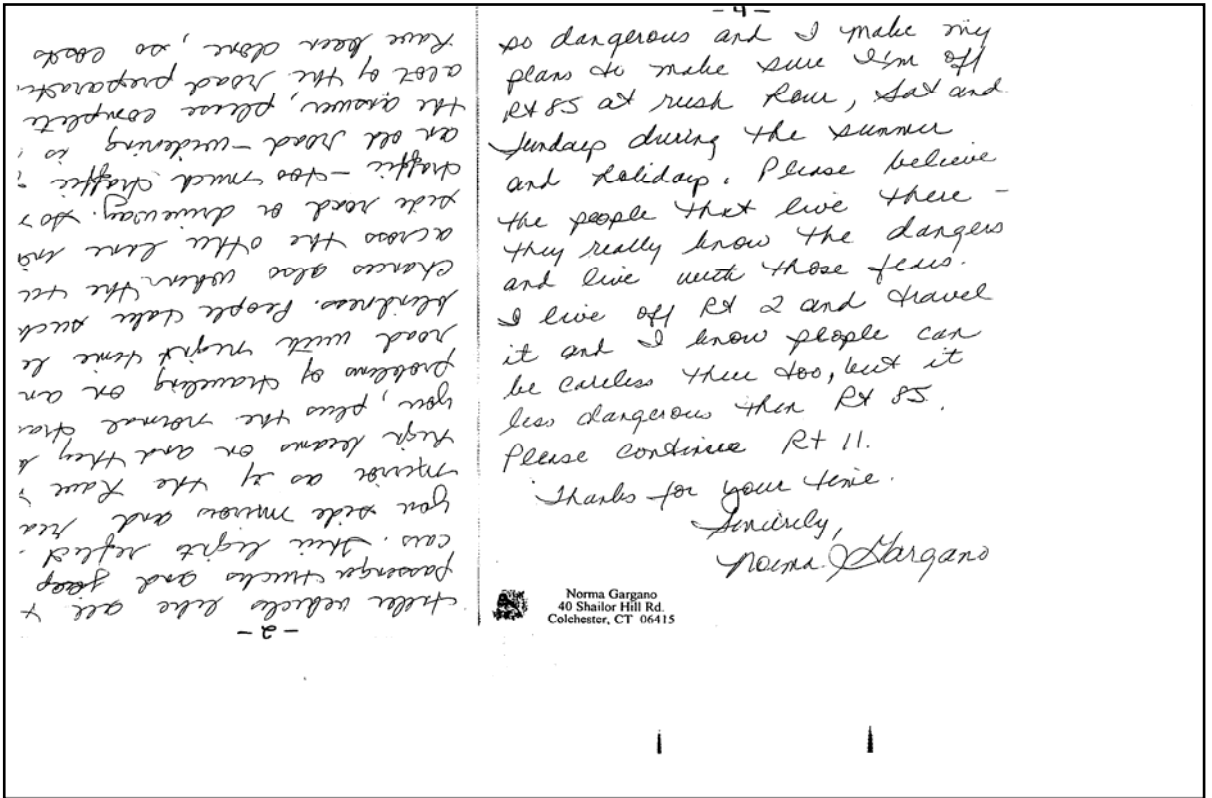 - 2 -
taller vehicles like all
passenger trucks and jeep
cars. Their lights reflect
you side mirrors and rea
mirror as if the have
high beams on and they
you, plus the normal
problems of traveling on an
road with night time
blindness. People take such
chances also when the
across the other lane
side road or driveway. So
traffic - too much traffic
an old road - widening is
the answer, please complete
alot of the road preparati
have been done, so costs
- 4 -
so dangerous and I make my
plans to make sure I'm off
Rt 85 at rush hour, Sat and
Sundays during the summer
and holidays. Please believe
the people that live there -
they really know the dangers
and live with those fears.
I live off Rt 2 and travel
it and I know people can
be careless there too, but it
less dangerous then Rt 85.
Please continue Rt 11.
Thanks for your time.
Sincerely,
Norma Gargano
Norma Gargano
40 Shailor Hill Rd.
Colchester, CT 06415